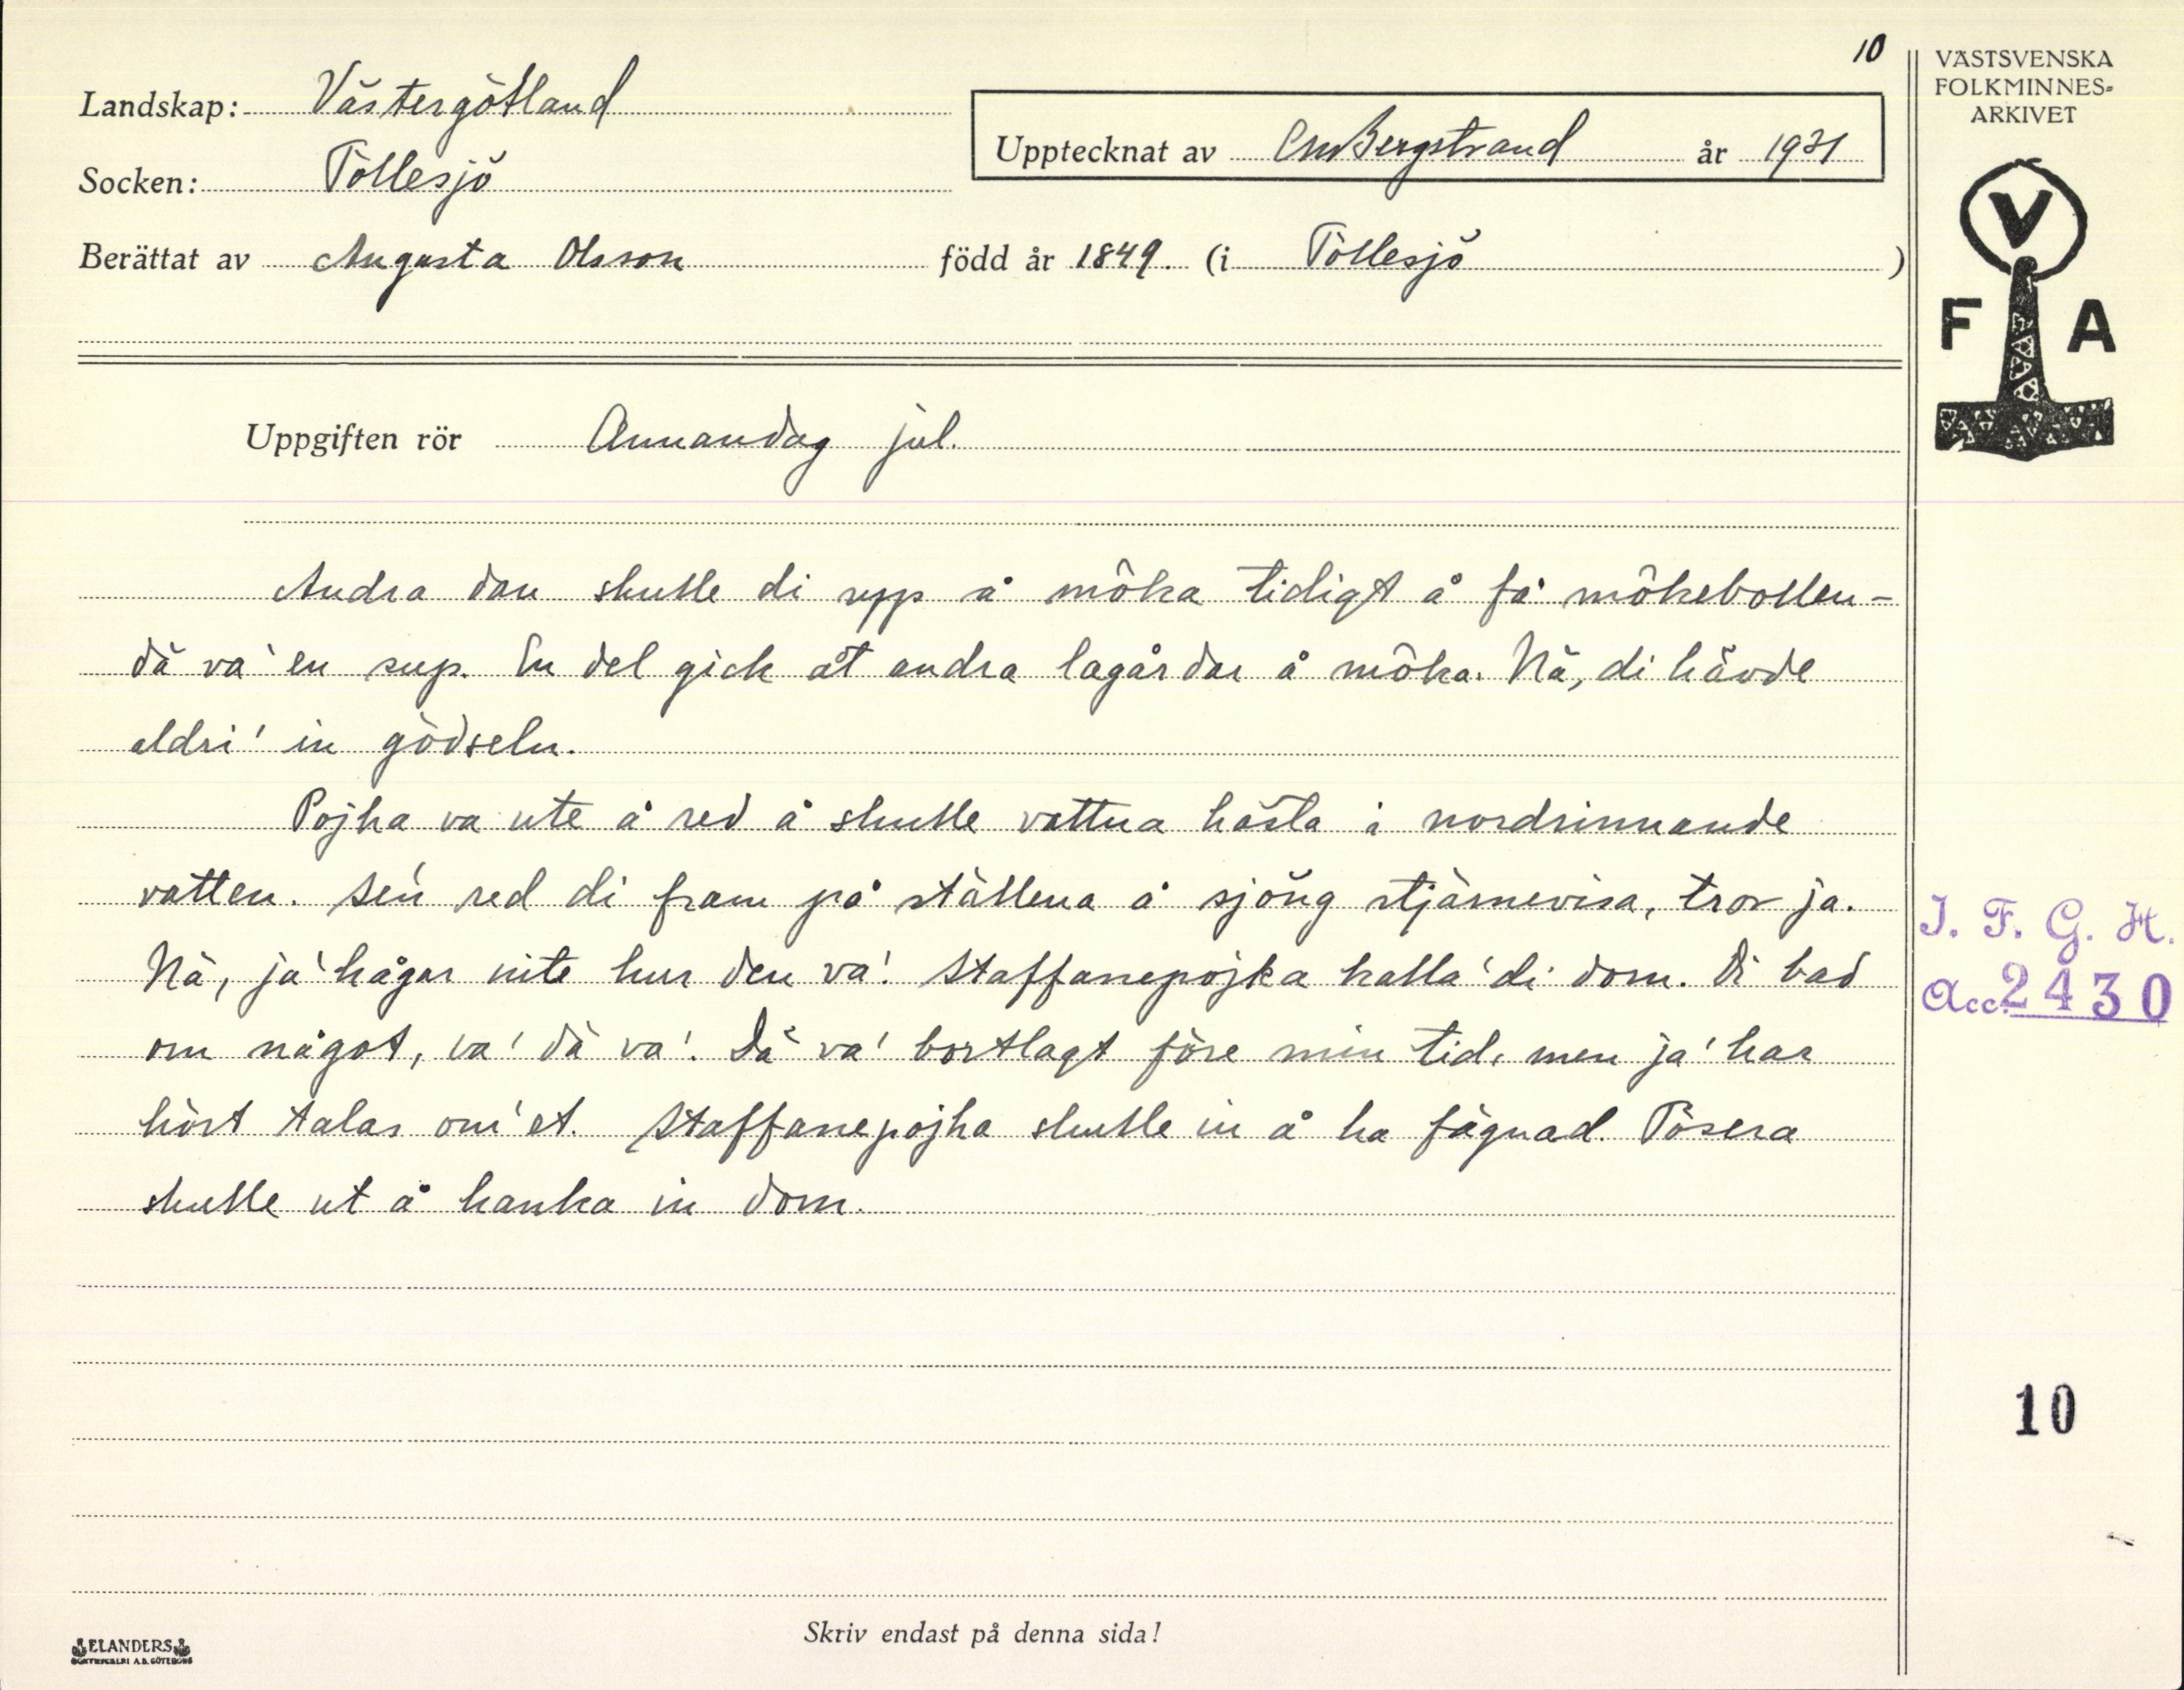 10
Landskap: Västergötland
Socken: Töllesjö
Upptecknat av CM Bergstrand år 1931
Berättat av Augusta Olsson född år 1849. (i Töllesjö )
VÄSTSVENSKA
FOLKMINNES-
ARKIVET
V
F A
Uppgiften rör Annandag jul.
Andra dan skulle di upp å môka tidigt å få môkebollen -
dä va' en sup. En del gick åt andra lagårdar å môka. Nä, di hävde
aldri' in gödseln.
Pojka va ute å red å skulle vattna hästa i nordrinnande
vatten. Sen red di fram på ställena å sjöng stjärnevisa, tror ja.
Nä, ja' hågar nite hur den va'. Staffanepojka kalla' di dom. Di bad
om något, va' dä va'. Dä va' bortlagt före min tid, men ja' har
hört talas om'et. Staffanepojka skulle in å ha fägnad. Tösera
skulle ut å hanka in dom.
I. F. G. H.
Acc. 2430
10
Skriv endast på denna sida!
ELANDERS
BOKTRYCKERI A.B. GÖTEBORG